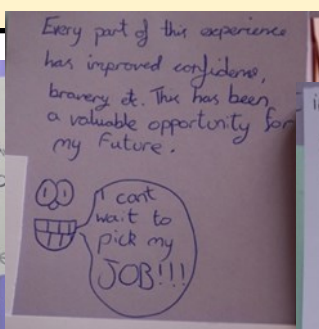 Every part of this experience
has improved confidence,
bravery etc. This has been
a valuable opportunity for
my Future.
I cant
wait to
pick my
JOB!!!